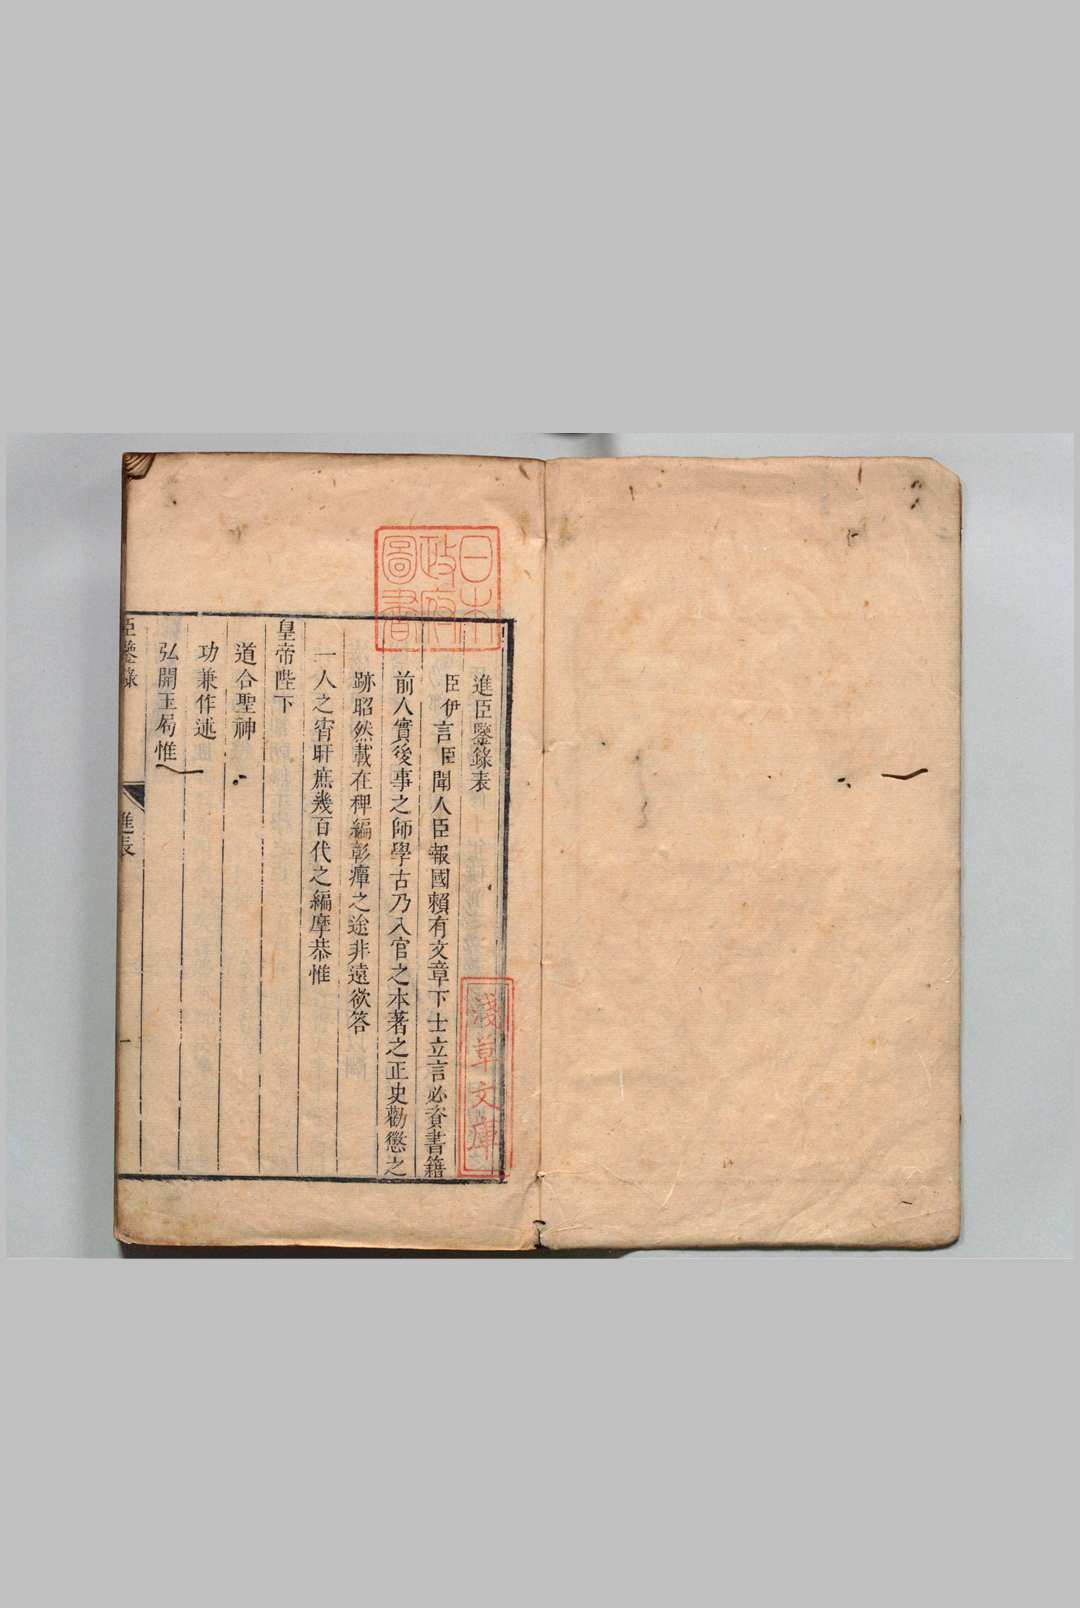 日本
政府
圖書
進臣鑒錄表
臣伊言臣聞人臣報國賴有文章下士立言必資書籍
前人實後事之師學古乃入官之本著之正史勸懲之
跡昭然載在稗編彰癉之途非遠欲答
一人之宵旰庶幾百代之編摩恭惟
皇帝陛下
道合聖神
功兼作述
弘開玉局惟
臣鑒錄
進表
一
淺草文庫